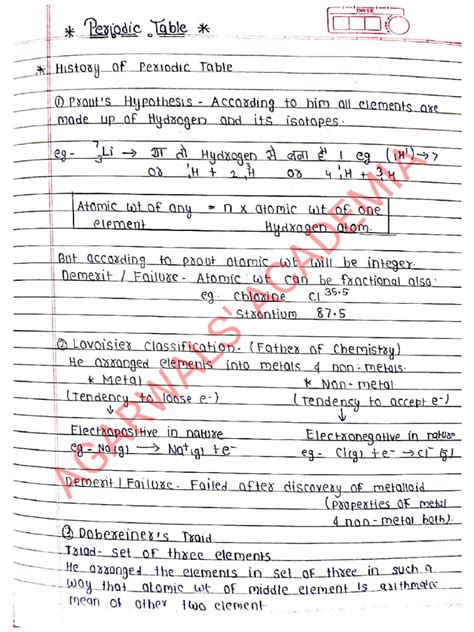 DATE
* Periodic Table *
* History of Periodic Table
① Prout's Hypothesis - According to him all elements are
made up of Hydrogen and its isotopes.
eg- ⁷₃Li → या तो Hydrogen से बना है । eg (¹₁H) → 7
or ¹₁H + 2 ³₁H or 4 ¹₁H + ³₁H
Atomic wt of any = n x atomic wt of one
element Hydrogen atom.
But according to prout atomic wt will be integer.
Demerit / Failure - Atomic wt can be fractional also.
eg. Chlorine Cl 35.5
Strontium 87.5
② Lavoisier classification - (Father of Chemistry)
He arranged elements into metals & non-metals.
* Metal * Non-metal
(Tendency to loose e-) (Tendency to accept e-)
↓ ↓
Electropositive in nature Electronegative in nature
eg - Na(g) → Na⁺(g) + e- eg - Cl(g) + e- → Cl⁻(g)
Demerit / Failure - Failed after discovery of metalloid
(Properties of metal
& non-metal both).
③ Dobereiner's Traid
Triad - set of three elements
He arranged the elements in set of three in such a
way that atomic wt of middle element is arithmatic
mean of other two element.
AGARWALS' ACADEMIA